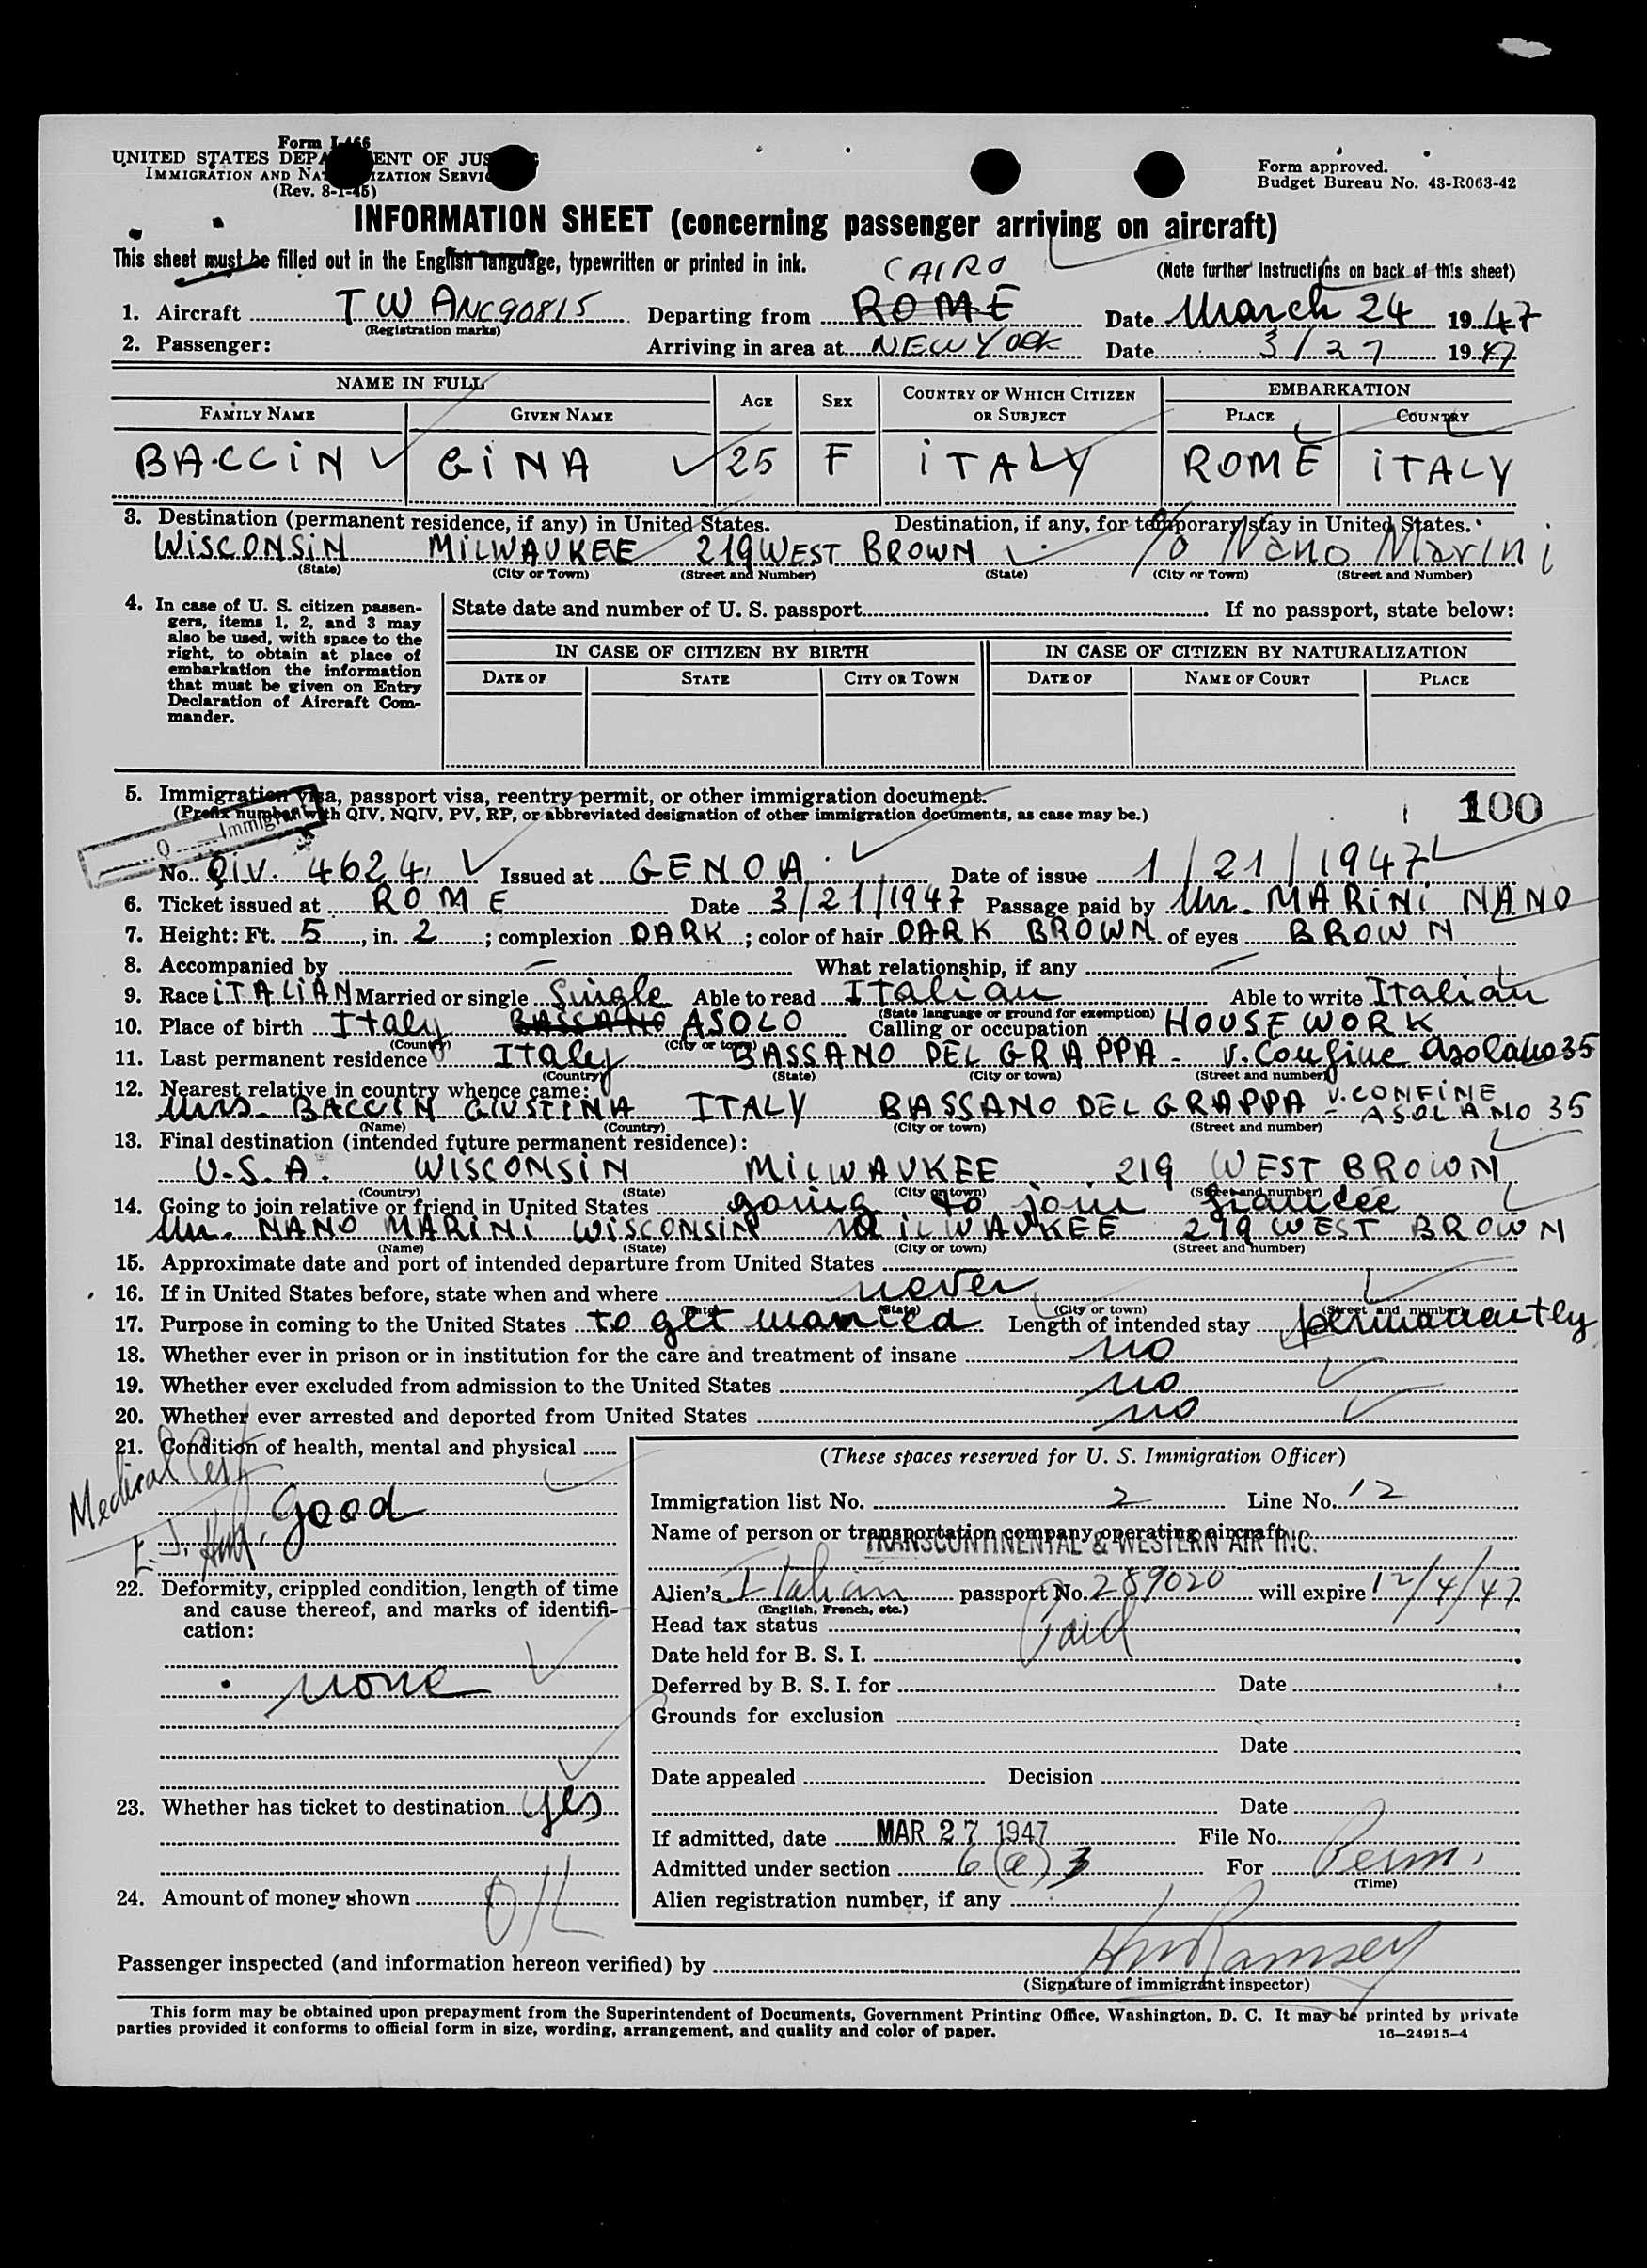 Form I-466
UNITED STATES DEPARTMENT OF JUSTICE
IMMIGRATION AND NATURALIZATION SERVICE
(Rev. 8-1-45)
Form approved.
Budget Bureau No. 43-R063-42
INFORMATION SHEET (concerning passenger arriving on aircraft)
This sheet must be filled out in the English language, typewritten or printed in ink.
(Note further Instructions on back of this sheet)
CAIRO
1. Aircraft TWA NC90815 Departing from ROME Date March 24 1947
(Registration marks)
2. Passenger: Arriving in area at NEW YORK Date 3/27 1947
NAME IN FULL AGE SEX COUNTRY OF WHICH CITIZEN OR SUBJECT EMBARKATION
FAMILY NAME GIVEN NAME PLACE COUNTRY
BACCIN GINA 25 F ITALY ROME ITALY
3. Destination (permanent residence, if any) in United States. Destination, if any, for temporary stay in United States.
WISCONSIN MILWAUKEE 219 WEST BROWN % Nano Marini
(State) (City or Town) (Street and Number) (State) (City or Town) (Street and Number)
4. In case of U. S. citizen passen-
gers, items 1, 2, and 3 may
also be used, with space to the
right, to obtain at place of
embarkation the information
that must be given on Entry
Declaration of Aircraft Com-
mander.
State date and number of U. S. passport If no passport, state below:
IN CASE OF CITIZEN BY BIRTH IN CASE OF CITIZEN BY NATURALIZATION
DATE OF STATE CITY OR TOWN DATE OF NAME OF COURT PLACE
5. Immigration visa, passport visa, reentry permit, or other immigration document.
(Prefix number with QIV, NQIV, PV, RP, or abbreviated designation of other immigration documents, as case may be.)
100
Q Immigr
No. QIV. 4624 Issued at GENOA Date of issue 1/21/1947
6. Ticket issued at ROME Date 3/21/1947 Passage paid by Mr. MARINI NANO
7. Height: Ft. 5, in. 2; complexion DARK; color of hair DARK BROWN of eyes BROWN
8. Accompanied by — What relationship, if any —
9. Race ITALIAN Married or single Single Able to read Italian Able to write Italian
(State language or ground for exemption)
10. Place of birth Italy BASSANO ASOLO Calling or occupation HOUSEWORK
(Country) (City or town)
11. Last permanent residence Italy BASSANO DEL GRAPPA - v. Confine Asolano 35
(Country) (State) (City or town) (Street and number)
12. Nearest relative in country whence came:
Mrs. BACCIN GIUSTINA ITALY BASSANO DEL GRAPPA - V. CONFINE ASOLANO 35
(Name) (Country) (City or town) (Street and number)
13. Final destination (intended future permanent residence):
U.S.A. WISCONSIN MILWAUKEE 219 WEST BROWN
(Country) (State) (City or town) (Street and number)
14. Going to join relative or friend in United States going to join fiancée
Mr. NANO MARINI WISCONSIN MILWAUKEE 219 WEST BROWN
(Name) (State) (City or town) (Street and number)
15. Approximate date and port of intended departure from United States
16. If in United States before, state when and where never
(Date) (State) (City or town) (Street and number)
17. Purpose in coming to the United States to get married Length of intended stay permanently
18. Whether ever in prison or in institution for the care and treatment of insane no
19. Whether ever excluded from admission to the United States no
20. Whether ever arrested and deported from United States no
21. Condition of health, mental and physical
Medical Cert
good
22. Deformity, crippled condition, length of time
and cause thereof, and marks of identifi-
cation:
none
23. Whether has ticket to destination yes
24. Amount of money shown OK
(These spaces reserved for U. S. Immigration Officer)
Immigration list No. 2 Line No. 12
Name of person or transportation company operating aircraft
TRANSCONTINENTAL & WESTERN AIR INC.
Alien's Italian passport No. 289020 will expire 12/4/47
(English, French, etc.)
Head tax status Paid
Date held for B. S. I.
Deferred by B. S. I. for Date
Grounds for exclusion
Date
Date appealed Decision
Date
If admitted, date MAR 27 1947 File No.
Admitted under section 6(a)3 For Perm.
(Time)
Alien registration number, if any
Passenger inspected (and information hereon verified) by HM Ramsey
(Signature of immigrant inspector)
This form may be obtained upon prepayment from the Superintendent of Documents, Government Printing Office, Washington, D. C. It may be printed by private
parties provided it conforms to official form in size, wording, arrangement, and quality and color of paper.
16—24915-4